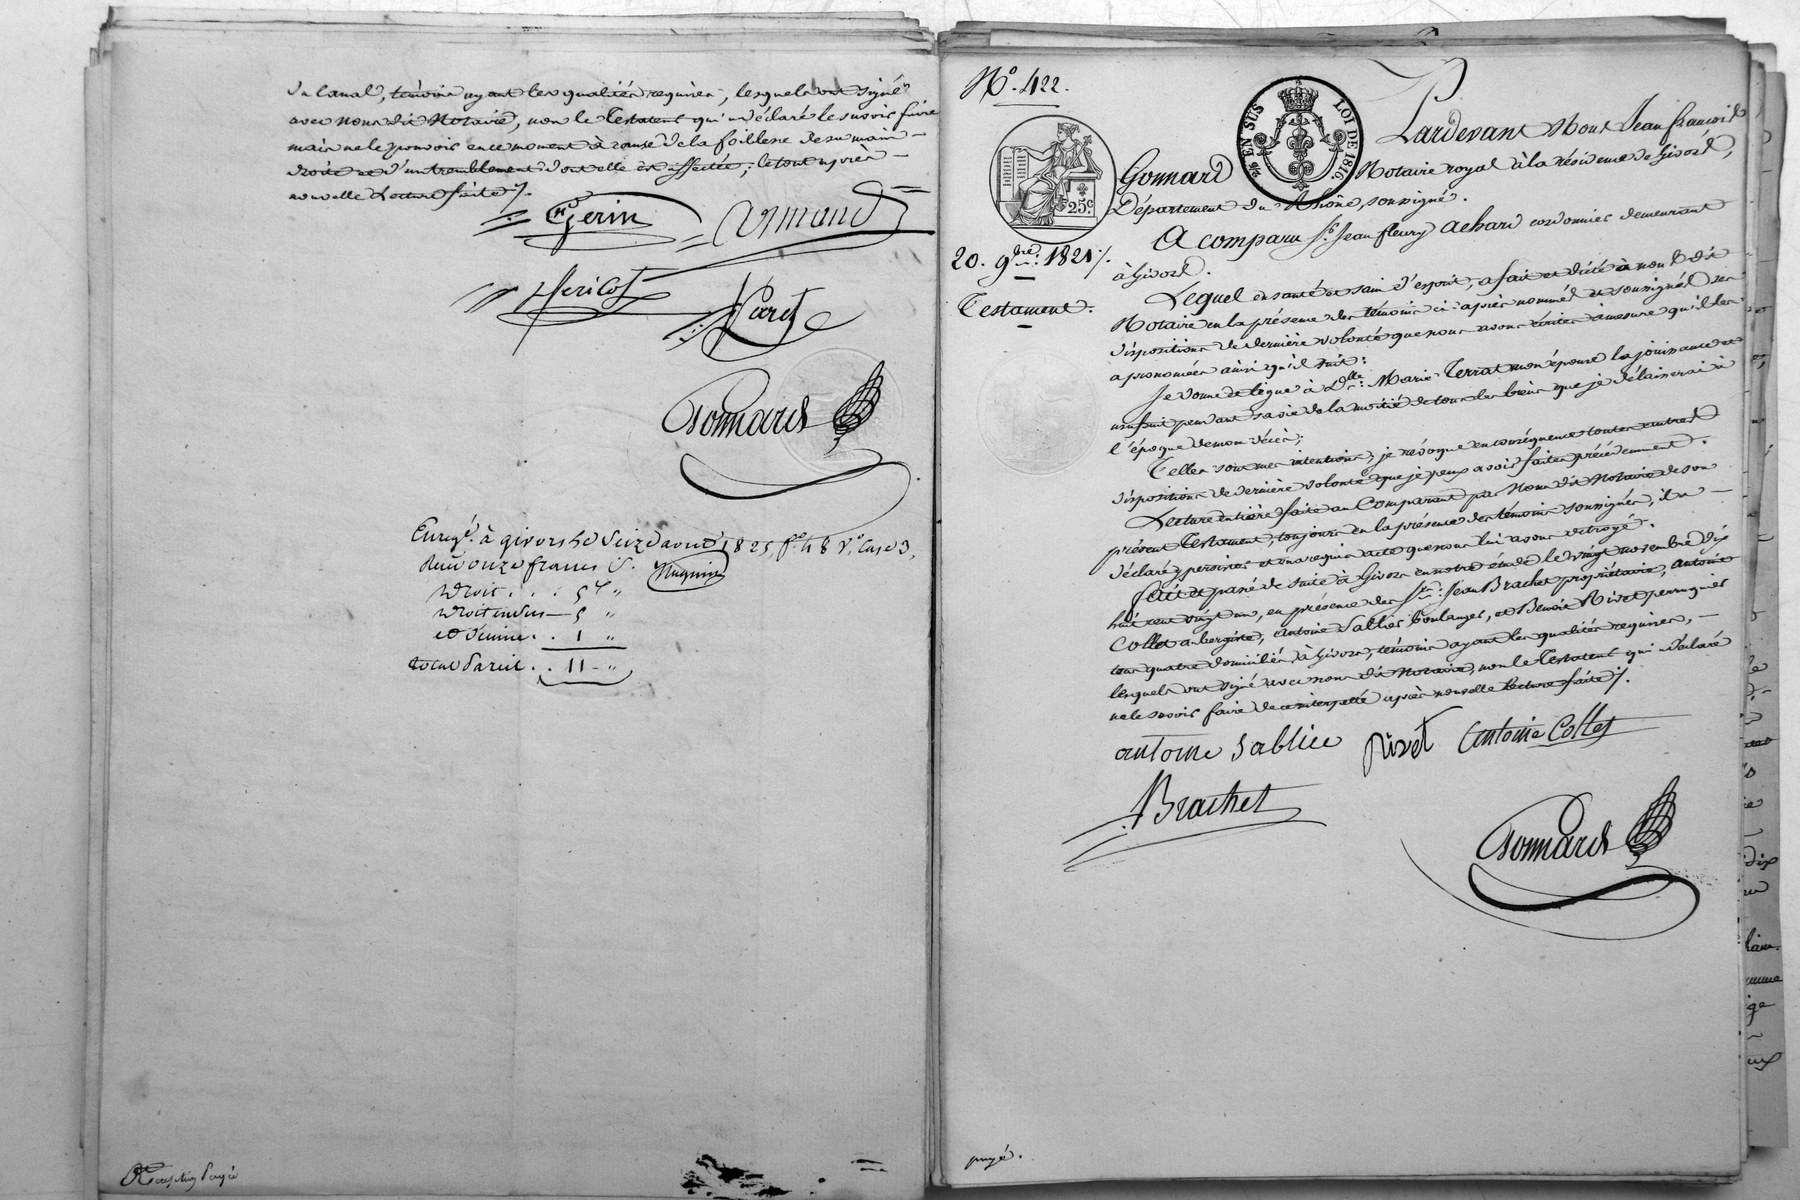 du Canal, témoins ayant les qualités requises, lesquels ont signé
avec nous dit Notaire, non le Testateur qui a déclaré le savoir faire
mais ne le pouvoir en ce moment à cause de la foiblesse de sa main
droite et d'un tremblement dont elle est affectée; le tout après
nouvelle Lecture faite ./.
Gerin Armand
Hericot Paret
Gonnard
Enregé. à givors le Seize avril 1825, fo. 48 Vo. Case 3,
Reçu onze francs
Droit . . . 5 "
Droit indus 5 "
et Dixme . . 1 "
total Pareil . . 11 - "
payé
No. 422.
EN SUS LOI DE 1816.
25c
20. 9bre. 1821 ./.
Testament.
Pardevant Nous Jean françois
Gonnard Notaire royal à la résidence de Givors,
Département du Rhône, soussigné.
A comparu Sr. Jean fleury achard cordonnier demeurant
à Givors.
Lequel en santé et sain d'esprit, a fait et dicté à nous dit
Notaire en la présence des témoins ci-après nommés et soussignés ses
dispositions de dernière volonté que nous avons écrites à mesure qu'il les
a prononcées ainsi qu'il suit:
Je donne et lègue à Dlle. Marie Terrat mon épouse la jouissance et
usufruit pendant sa vie de la moitié de tous les biens que je délaisserai à
l'époque de mon décès;
Telles sont mes intentions, je révoque en conséquence toutes autres
dispositions de dernière volonté que je peux avoir faites précédemment.
Lecture entière faite au Comparant par Nous dit Notaire de son
présent Testament, toujours en la présence des témoins soussignés, il a
déclaré y persister et en a requis acte que nous lui avons octroyé.
fait et passé de suite à Givors en notre étude le vingt novembre dix
huit cent vingt un, en présence des Srs. Jean Brachet propriétaire, Antoine
Collet aubergiste, Antoine Sablier boulanger, et Benoit Rivet perruquier
tous quatre domiciliés à Givors, témoins ayant les qualités requises,
lesquels ont signé avec nous dit Notaire, non le Testateur qui a déclaré
ne le savoir faire de ce interpellé après nouvelle lecture faite ./.
antoine Sablier rivet Antoine Collet
Brachet
Gonnard
payé.